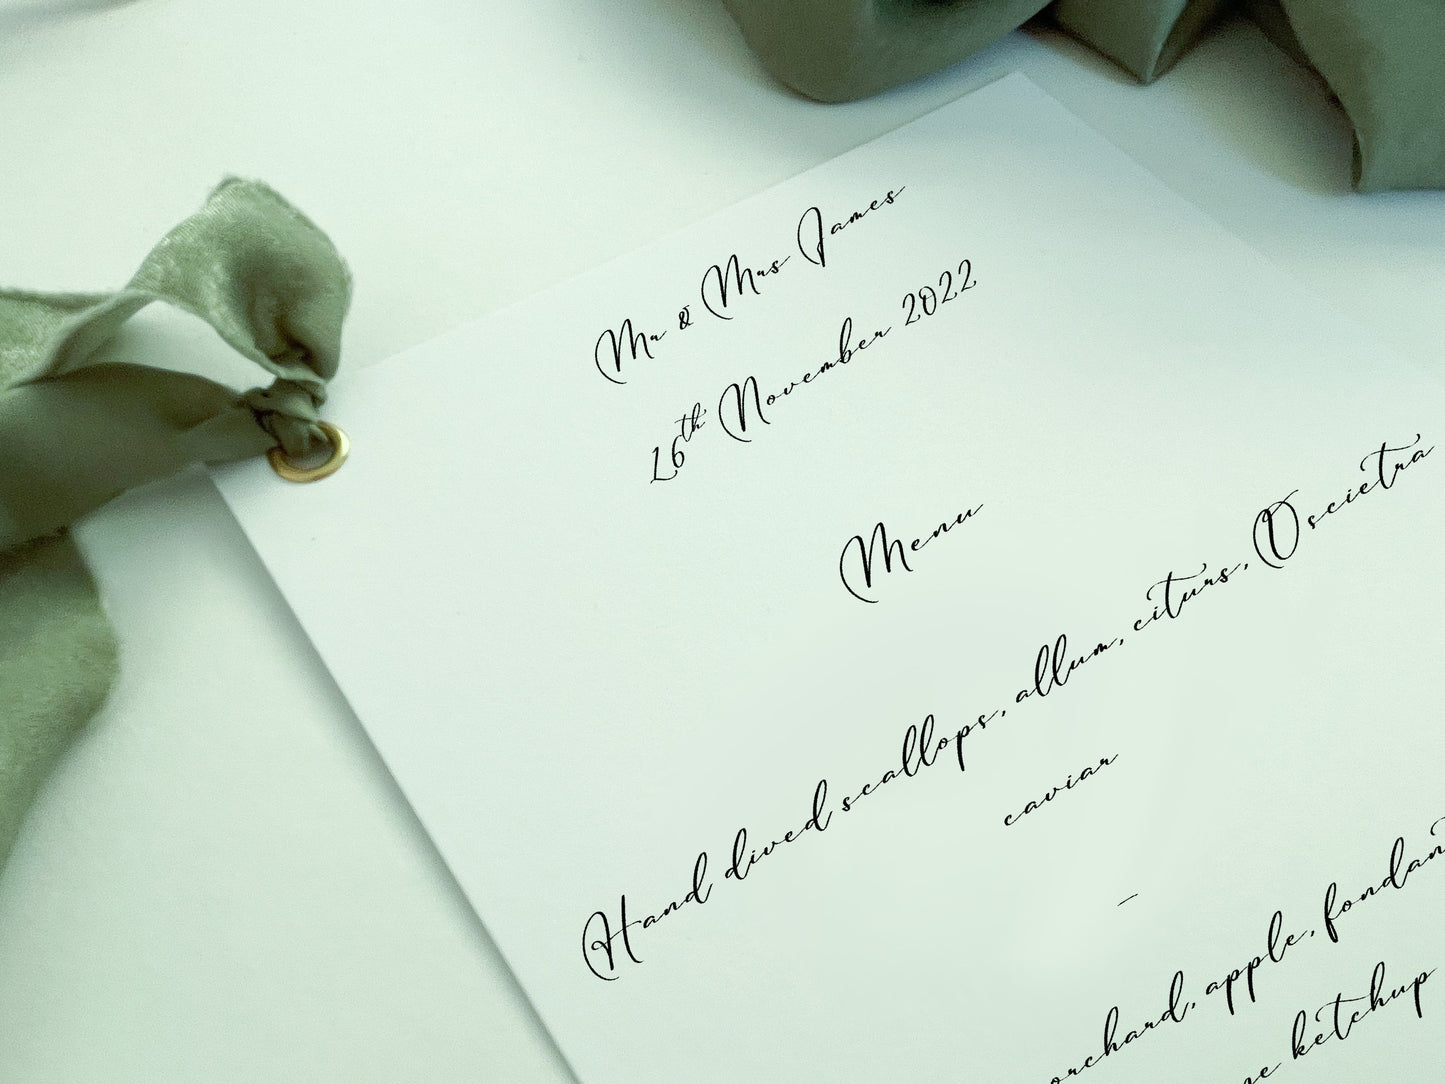 Mr & Mrs James
16th November 2022
Menu
Hand dived scallops, allum, citurs, Oscietra
caviar
–
orchard, apple, fondant
ketchup